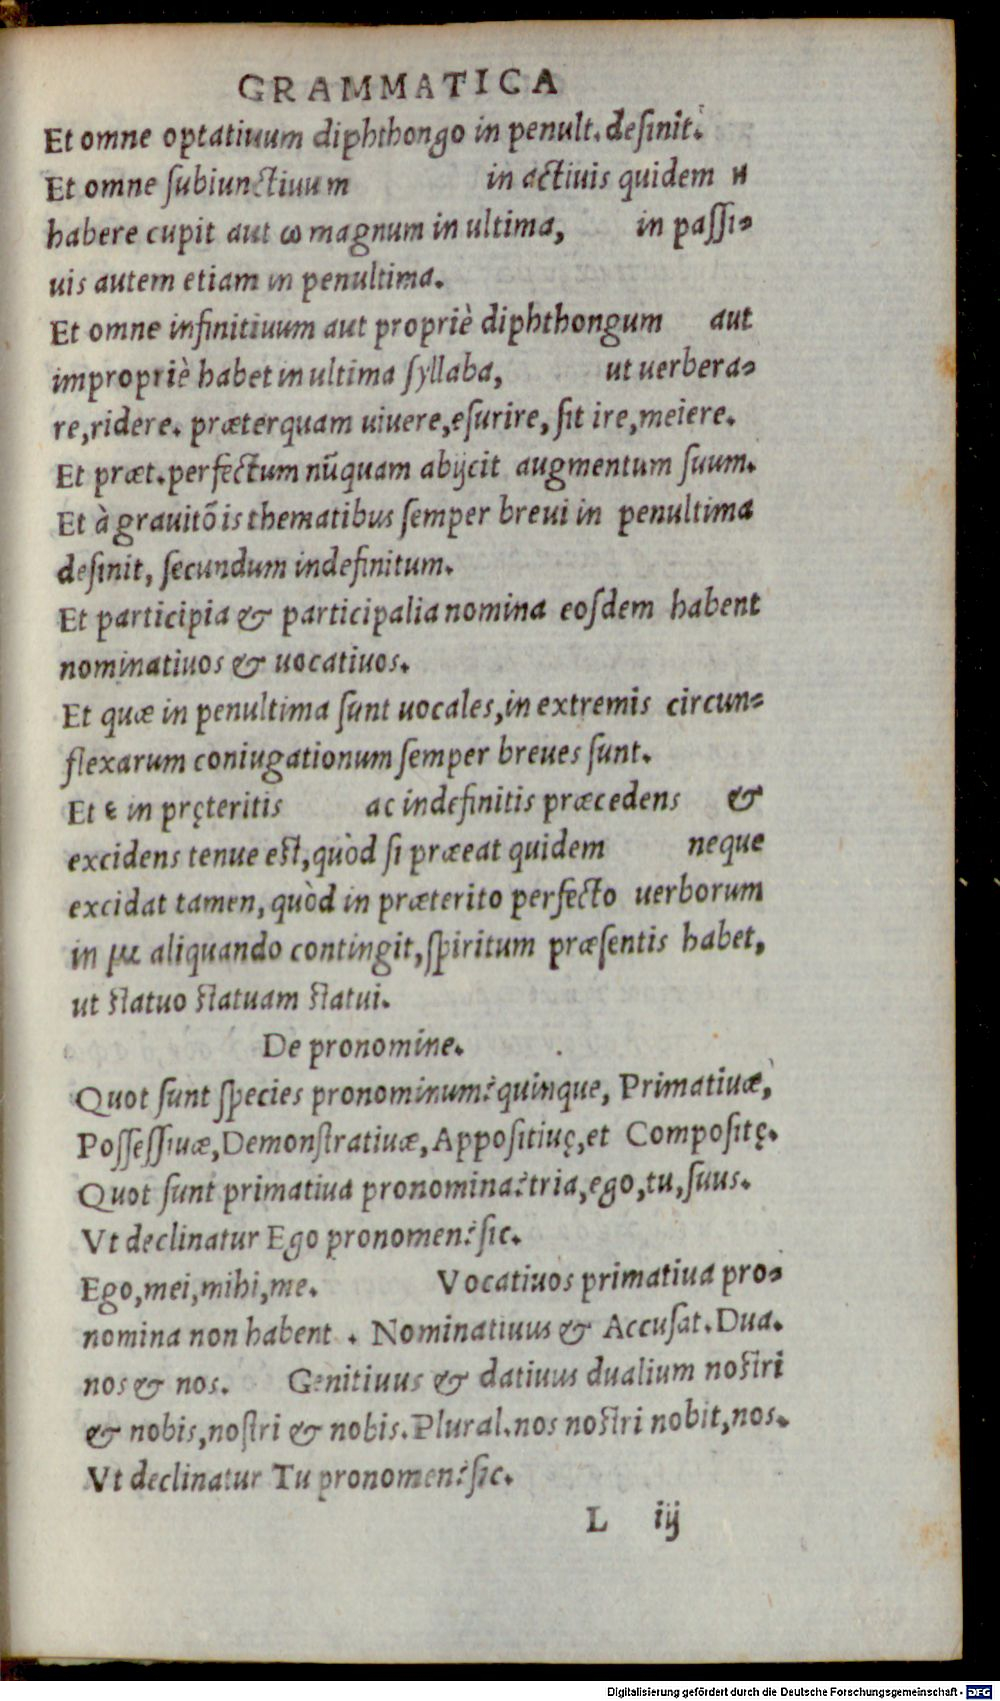 GRAMMATICA
Et omne optatiuum diphthongo in penult. deſinit.
Et omne ſubiunctiuum in actiuis quidem η
habere cupit aut ω magnum in ultima, in paſſi-
uis autem etiam in penultima.
Et omne infinitiuum aut propriè diphthongum aut
impropriè habet in ultima ſyllaba, ut uerbera-
re, ridere. præterquam uiuere, eſurire, ſit ire, meiere.
Et præt. perfectum nũquam abijcit augmentum ſuum.
Et à grauitõis thematibus ſemper breui in penultima
deſinit, ſecundum indefinitum.
Et participia & participalia nomina eoſdem habent
nominatiuos & uocatiuos.
Et quæ in penultima ſunt uocales, in extremis circun-
flexarum coniugationum ſemper breues ſunt.
Et ε in pręteritis ac indefinitis præcedens &
excidens tenue eſt, quòd ſi præeat quidem neque
excidat tamen, quòd in præterito perfecto uerborum
in μι aliquando contingit, ſpiritum præſentis habet,
ut ſtatuo ſtatuam ſtatui.
De pronomine.
Quot ſunt ſpecies pronominum? quinque, Primatiuæ,
Poſſeſſiuæ, Demonſtratiuæ, Appoſitiuę, et Compoſitę.
Quot ſunt primatiua pronomina? tria, ego, tu, ſuus.
Vt declinatur Ego pronomen? ſic.
Ego, mei, mihi, me. Vocatiuos primatiua pro-
nomina non habent . Nominatiuus & Accuſat. Dua.
nos & nos. Genitiuus & datiuus dualium noſtri
& nobis, noſtri & nobis. Plural. nos noſtri nobit, nos.
Vt declinatur Tu pronomen? ſic.
L iij
Digitalisierung gefördert durch die Deutsche Forschungsgemeinschaft - DFG